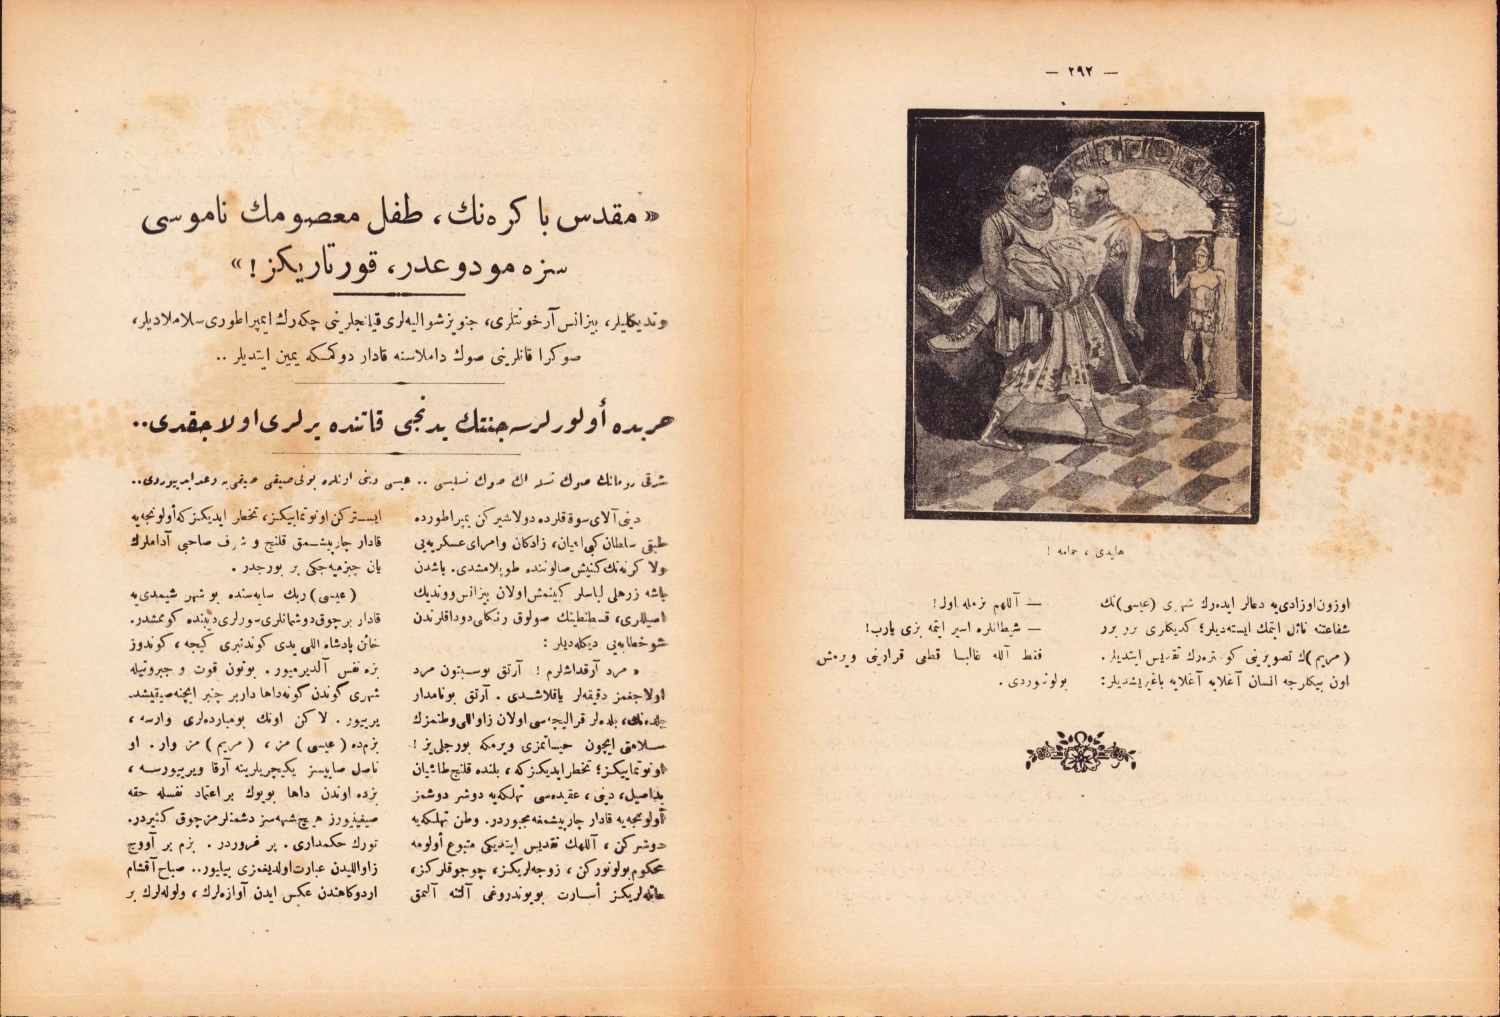 — ٢٩٢ —
هایدی ، حمامه !
اوزون اوزادی یه دعالر ایده رك شهری (عیسی) نك
شفاعتنه نائل ایتمك ایسته دیلر؛ كدیكلری برر برر
(مریم) ك تصویرینی كوستره رك تقدیس ایتدیلر.
اون بیكلرجه انسان آغلایه آغلایه باغیریشدیلر:
— آللهم بزمله اول!
— شیطانلره اسیر ایتمه بزی یارب!
فقط آلله غالبا قطعی قرارینی ویرمش
بولونیوردی .
« مقدس باكره نك ، طفل معصومك ناموسی
سزه مودوعدر ، قورتاریكز ! »
وندیكلیلر، بیزانس آرخونتلری، جنویز شوالیه لری قیلنجلرینی چكه رك ایمپراطوری سلاملادیلر،
صوكرا قانلرینی صوك داملاسنه قادار دوكمكه یمین ایتدیلر ..
حربده أولورلرسه جنتك یدنجی قاتنده یرلری اولاجقدی..
شرقی رومانك صوك اك صوك تسلیسی .. عیسی دینی اونلره بونی صیقی صیقی یه وعد ایدیوردی..
دینی آلای سوقاقلرده دولاشیركن ایمپراطورده
طبقی سلطان كبی اعیان، زادكان وامرای عسكریه یی
ولاكرنه نك كنیش صالوننده طوپلامشدی. باشدن
باشه زرهلی لباسلر كیینمش اولان بیزانس ووندیك
اصیللری، قسطنطینك صولوق رنكلی دوداقلرندن
شو خطابه یی دیكله دیلر :
« مرد آرقداشلرم ! آرتق بوسبتون مرد
اولاجغمز دقیقه لر یاقلاشدی . آرتق بو نامدار
بلده نك، بلده لر قرالیچه سی اولان زاواللی وطنمزك
سلامتی ایچون حیاتمزی ویرمكه بورجلی یز !
اونوتماییكز؛ تخطر ایدیكز كه ، بلنده قلنج طاشیان
بداصیل، دینی ، عقیده سی تهلكه یه دوشر دوشمز
أولونجه یه قادار چارپیشمغه مجبوردر. وطن تهلكه یه
دوشركن ، آللهك تقدیس ایتدیكی متبوع أولومه
محكوم بولونوركن ، زوجه لریكز ، چوجوقلركز،
عائله لریكز أسارت بویوندروغی آلتنه آلنمق
ایسـتركن اونوتماییكز، تخطر ایدیكز كه أولونجه یه
قادار چارپیشـمق قلنج و شرف صاحبی آداملرك
یان چیزمیه جكی بر بورجدر .
(عیسی) ربك سایه سنده بو شهر شیمدی یه
قادار برچوق دوشمانلری سورلری دیبنده كوممشدر.
خائن پادشاه اللی یدی كوندنبری كیجه ، كوندوز
بزه نفس آلدیرمیور. بوتون قوت و جبروتیله
شهری كوندن كونه داها دار بر چنبر ایچنه صیقیشد
یریور . لاكن اونك بومباردەلری وارسه ،
بزم ده (عیسی) مز ، (مریم) مز وار . او
ناصل صاییسز یكیچریلرینه آرقا ویریورسه ،
بزده اوندن داها بویوك بر اعتماد نفسله حقه
صیغینیورز. هیچ شبهه سز دشمنلرمز چوق كثیردر.
تورك حكمداری . پر غروردر . بزم بر آووچ
زاواللیدن عبارت اولدیغمزی بیلیور.. صباح آقشام
اردوكاهندن عكس ایدن آوازه لرك ، ولوله لرك بر